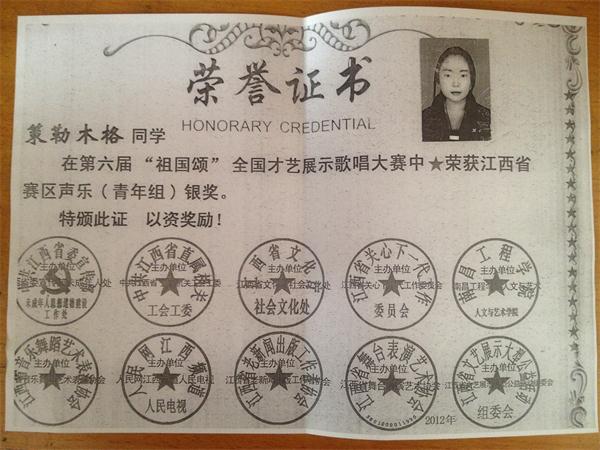 荣誉证书
HONORARY CREDENTIAL
策勒木格 同学
在第六届“祖国颂”全国才艺展示歌唱大赛中★荣获江西省
赛区声乐（青年组）银奖。
特颁此证 以资奖励！
主办单位 主办单位 主办单位 主办单位 主办单位
未成年人思想道德建设
工作处
中共江西省直属机关
工会工委
江西省文化
社会文化处
江西省关心下一代工作
委员会
南昌工程学院
人文与艺术学院
主办单位 主办单位 主办单位 主办单位 主办单位
江西省音乐舞蹈艺术表演协会
人民网江西频道
人民电视
江西省老新闻出版工作者协会
江西省舞台表演艺术协会
组委会
2012年